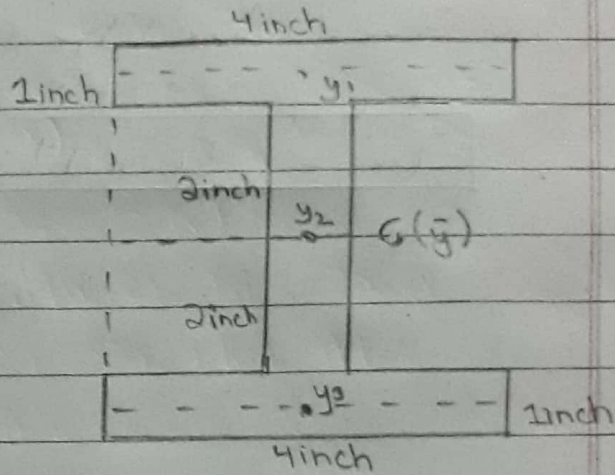 4inch
1inch
y1
2inch
y2
G(ȳ)
2inch
y3
1inch
4inch